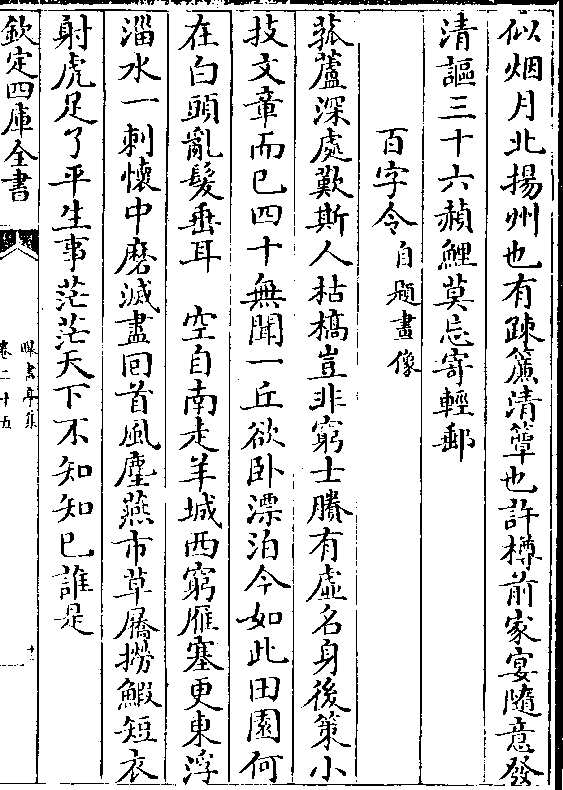 似烟月北揚州也有疎簾清簟也許樽前家宴隨意發
清謳三十六頳鯉莫忘寄輕郵
百字令自題畫像
菰蘆深處歎斯人枯槁豈非窮士賸有虛名身後策小
技文章而已四十無聞一丘欲卧漂泊今如此田園何
在白頭亂髮垂耳 空自南走羊城西窮雁塞更東浮
淄水一刺懷中磨滅盡回首風塵燕市草屩撈鰕短衣
射虎足了平生事茫茫天下不知知已誰是
欽定四庫全書
曝書亭集
卷二十五
十三